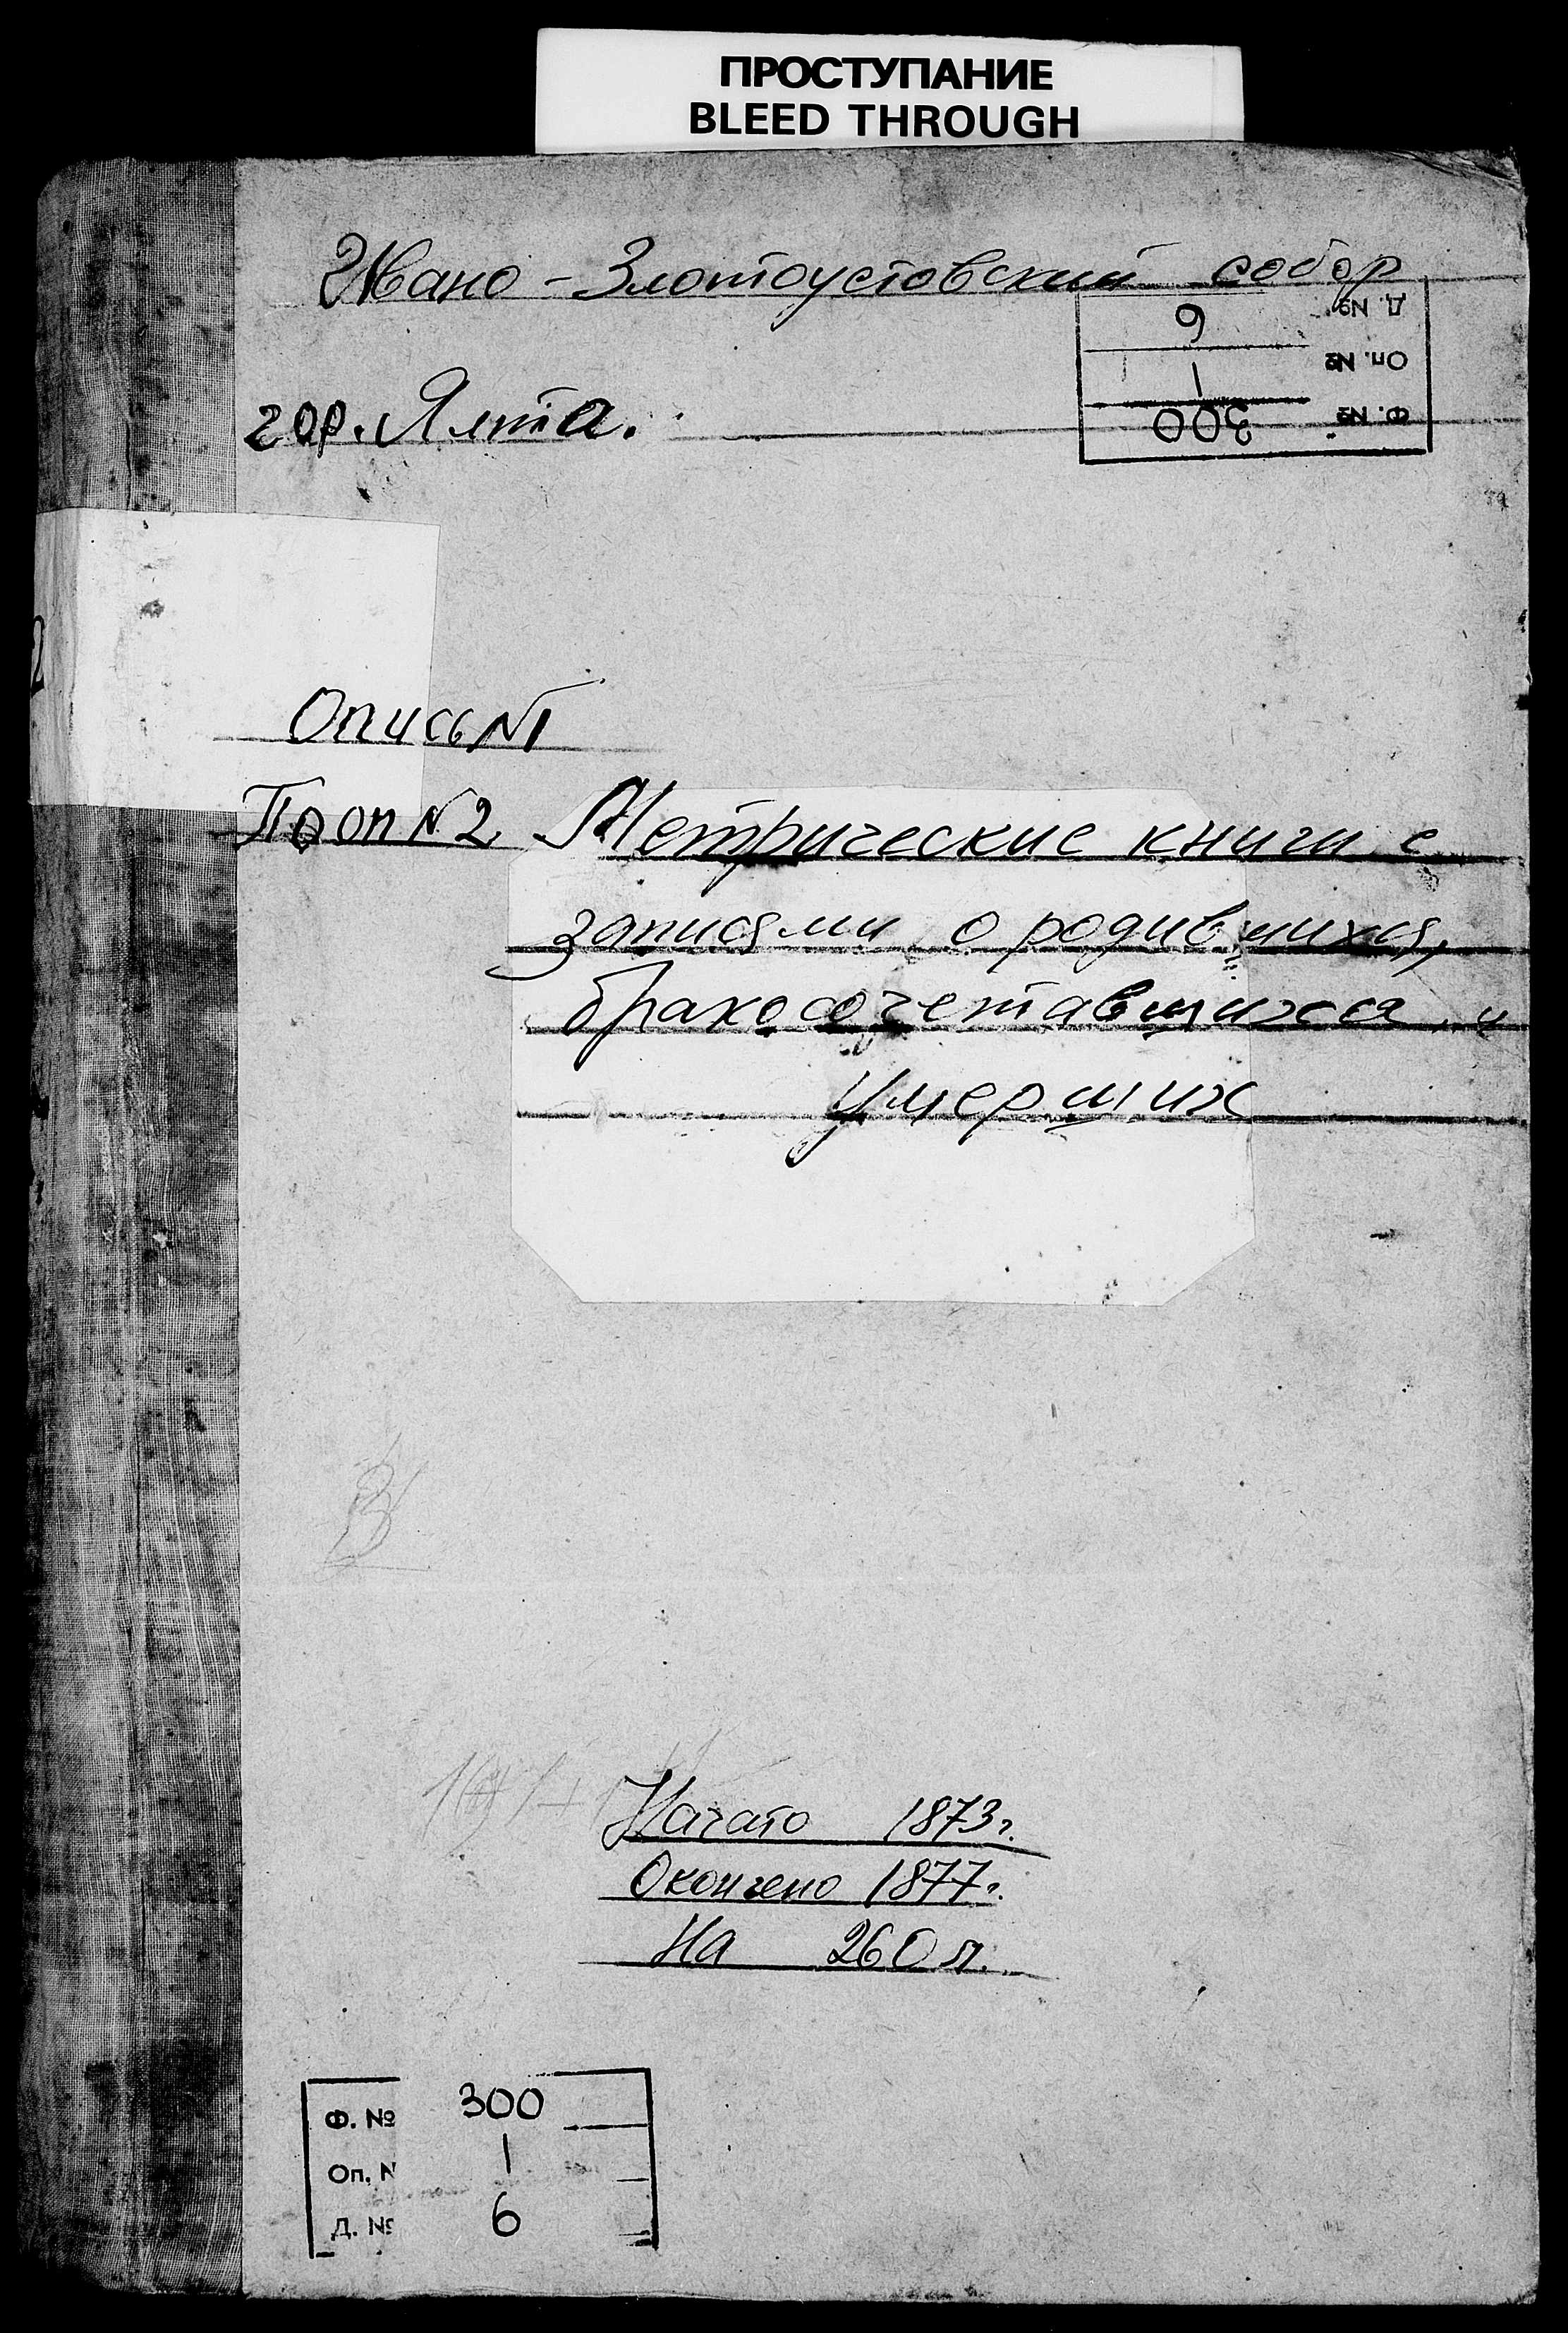 ПРОСТУПАНИЕ
BLEED THROUGH
Ивано-Злотоустовский собор
гор. Ялта.
Ф. № 300
Оп. № 1
Д. № 6
Опись №1
По оп №2. Метрические книги с
записями о родившихся,
бракосочетавшихся и
умерших
Начато 1873г.
Окончено 1877г.
На 260 л.
Ф. № 300
Оп. № 1
Д. № 6